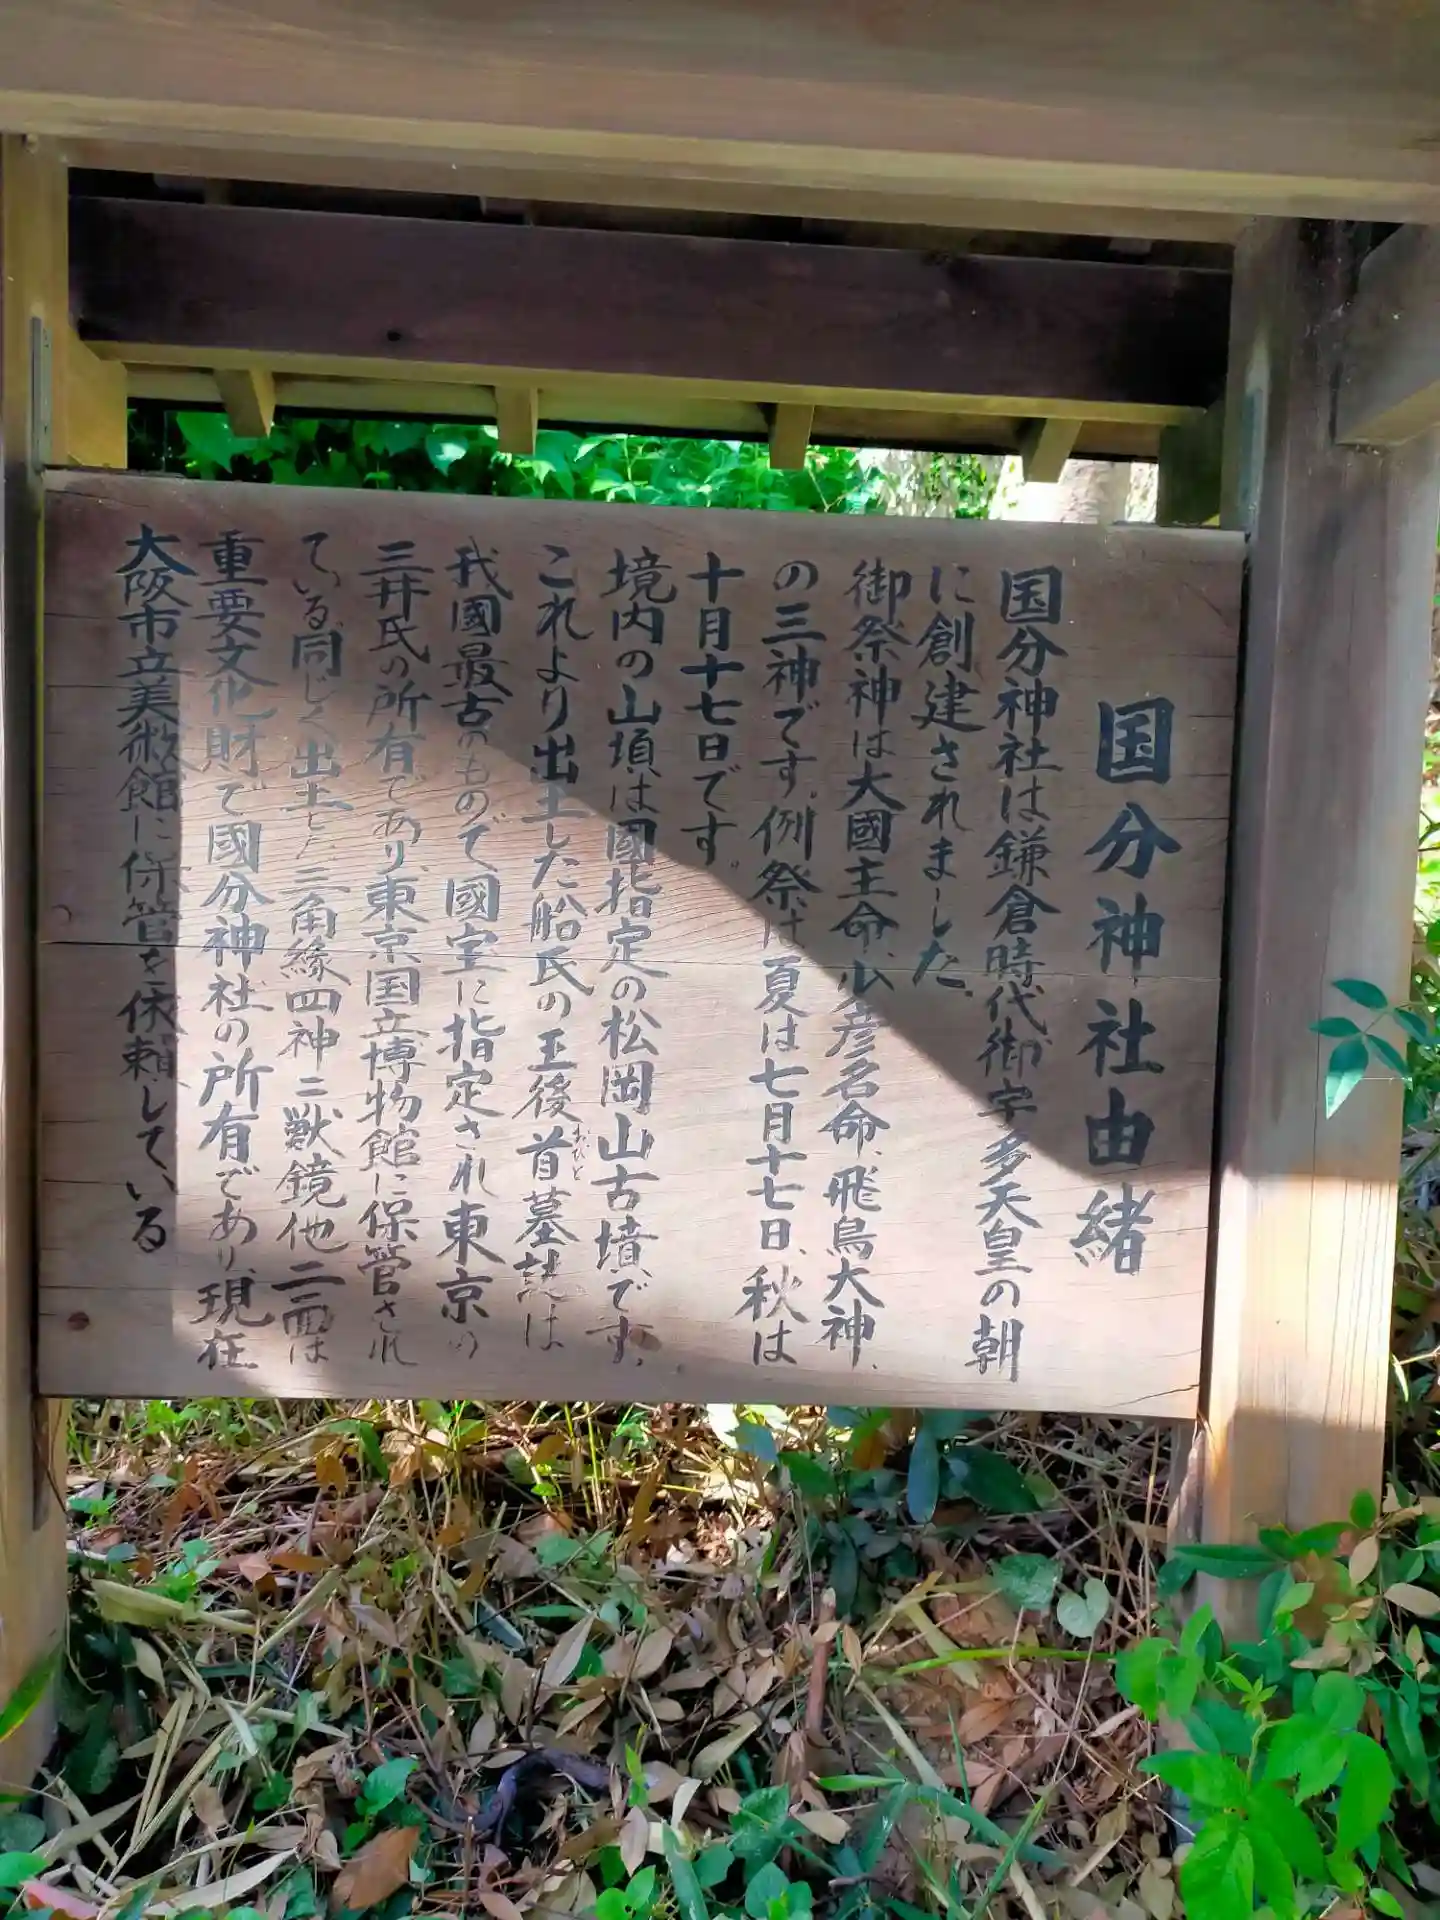 国分神社由緒
国分神社は鎌倉時代御宇多天皇の朝
に創建されました。
御祭神は大國主命、少彦名命、飛鳥大神、
の三神です。例祭は夏は七月十七日、秋は
十月十七日です。
境内の山頂は國指定の松岡山古墳です。
これより出土した船氏の王後首墓誌は
おびと
我國最古のもので國宝に指定され東京の
三井氏の所有であり、東京国立博物館に保管され
ている。同じく出土した三角縁四神二獣鏡他二面は
重要文化財で國分神社の所有であり、現在
大阪市立美術館に保管を依頼している